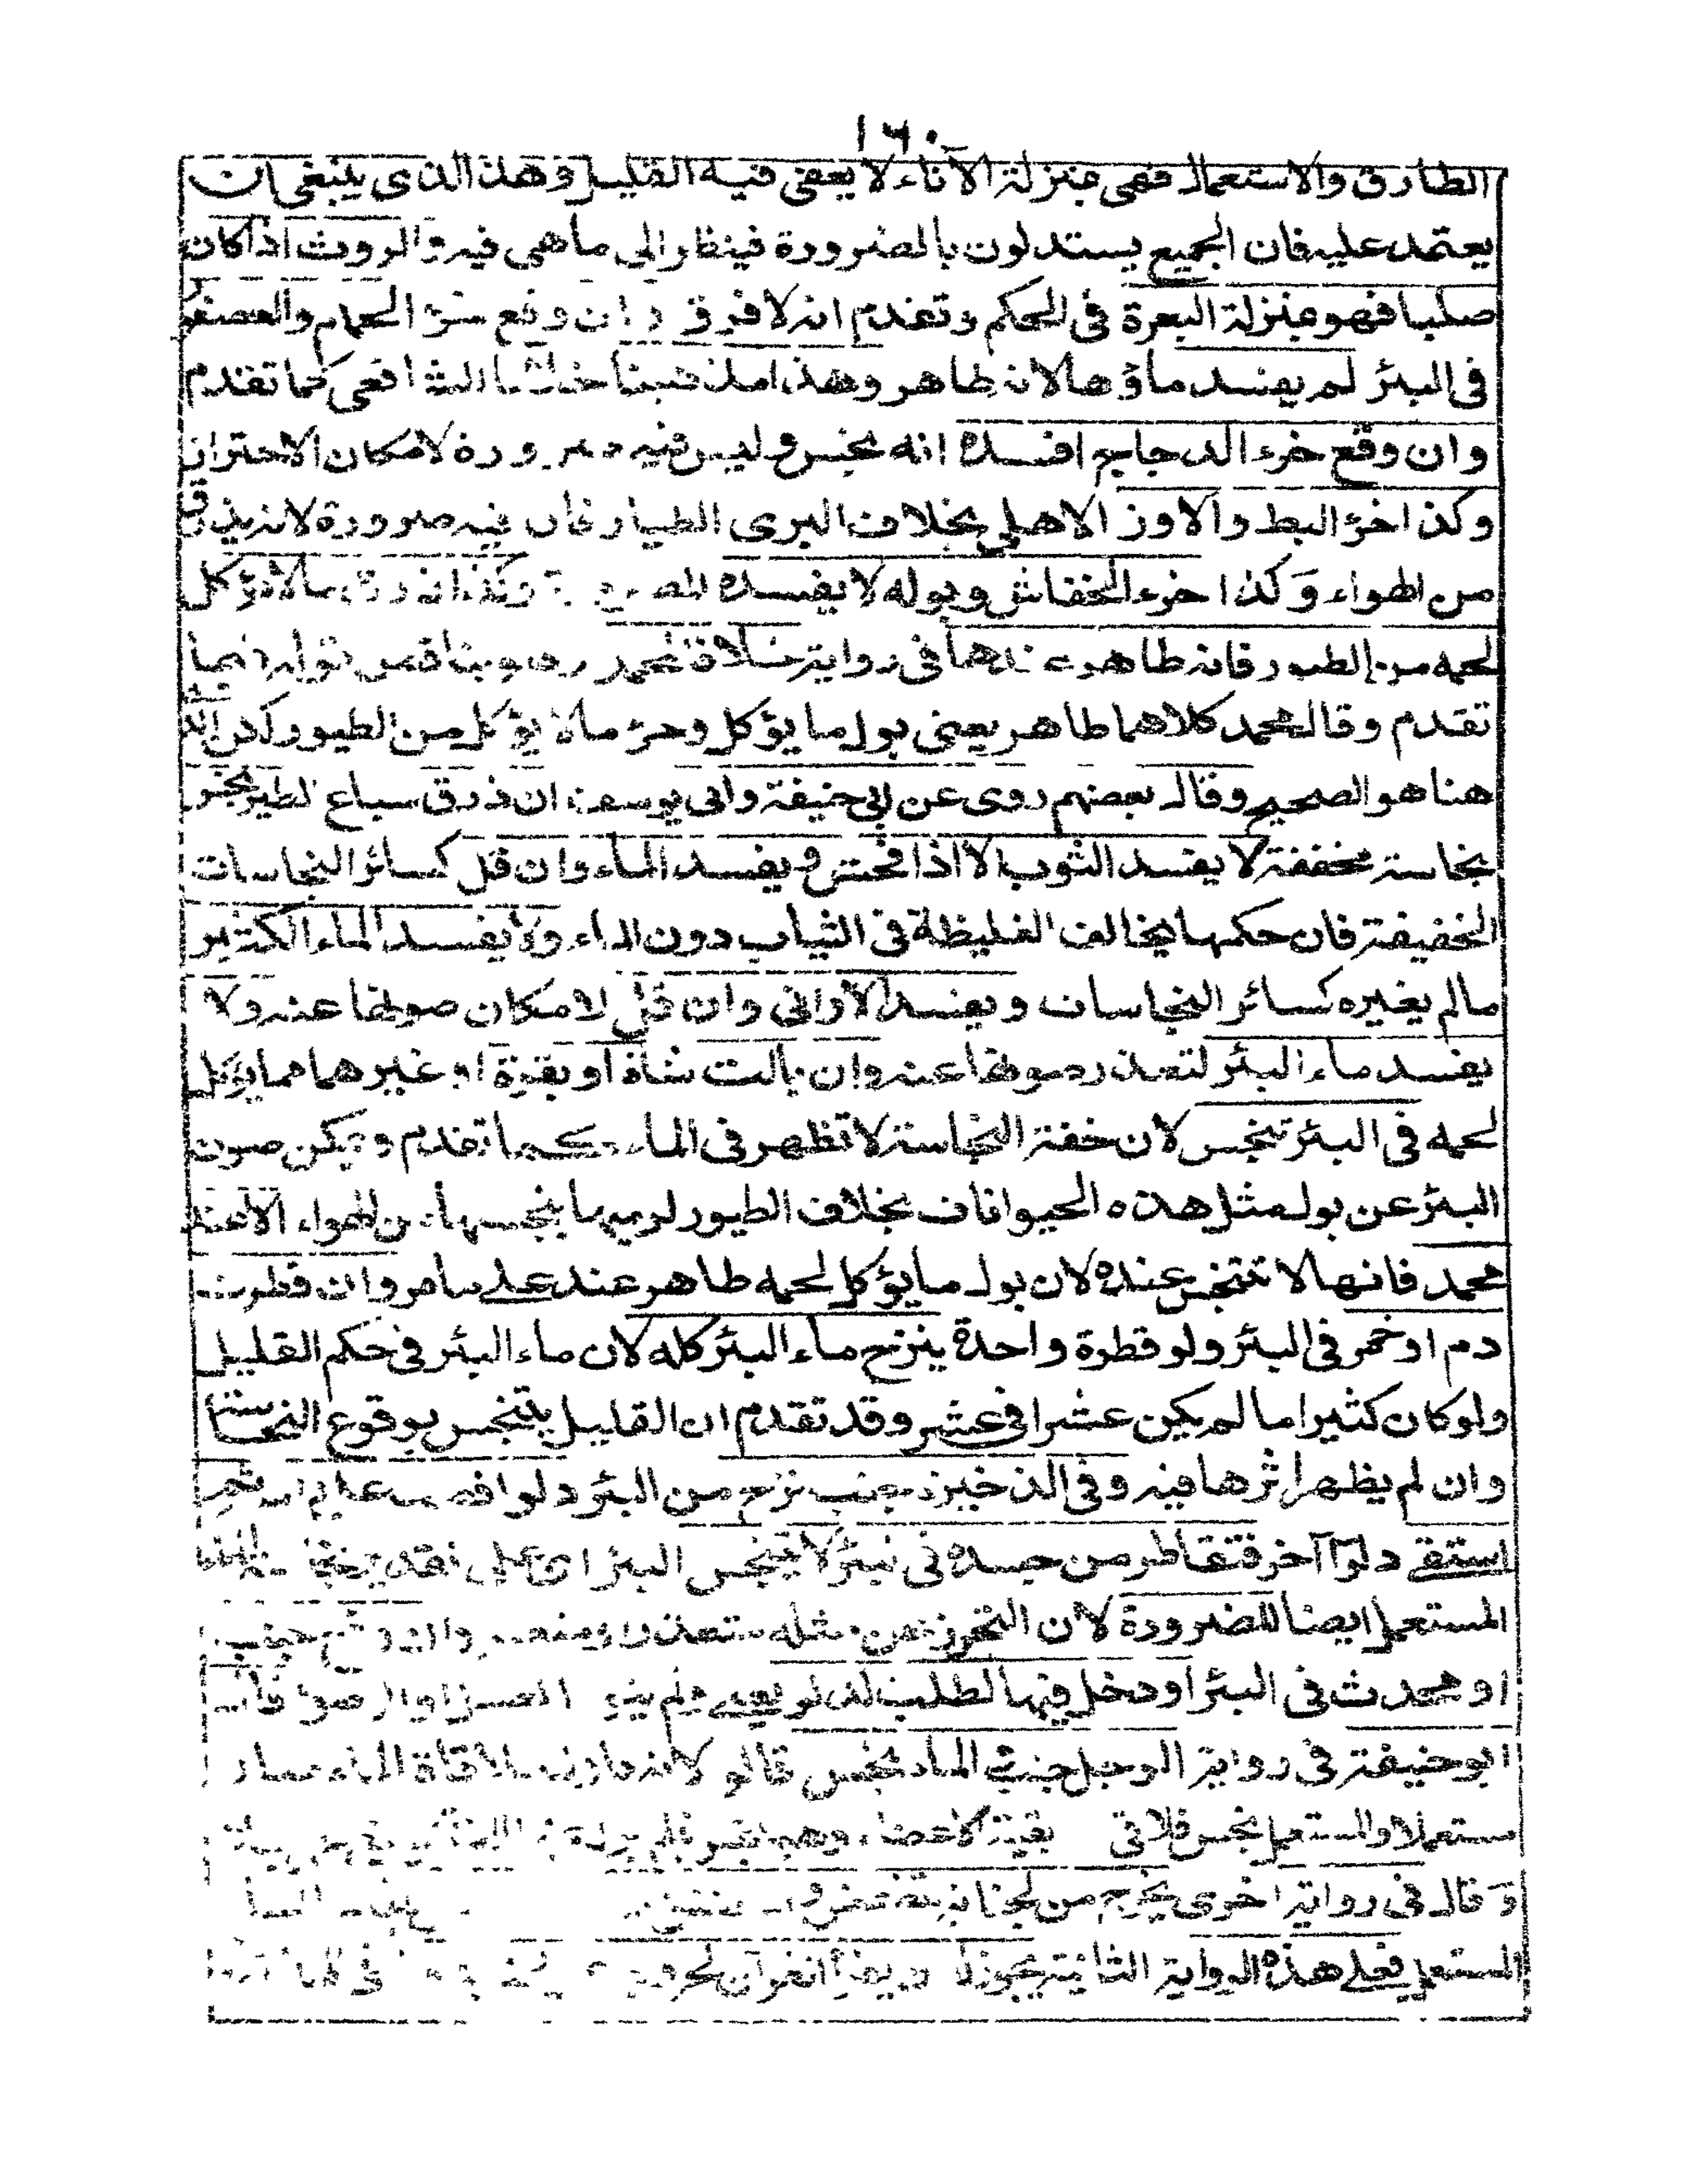 ١٦٠
الطارق والاستعمال فهى بمنزلة الآناء لا يعفى فيه القليل وهذا الذى ينبغى ان
يعتمد عليه فان الجميع يستدلون بالضرورة فينظر الى ما هى فيه والروث اذا كان
صلبا فهو بمنزلة البعرة فى الحكم وتقدم انه لا فرق وان وقع خرؤ الحمام والعصفور
فى البئر لم يفسد ماؤها لانه طاهر وهذا مذهبنا خلافا للشافعى كما تقدم
وان وقع خرء الدجاج افسده انه نجس وليس فيه ضرورة لامكان الاحتراز
وكذا خرؤ البط والاوز الاهلى بخلاف البرى الطيار فان فيه ضرورة لانه يذرق
من الهواء وكذا خرء الخفاش وبوله لا يفسده وكذا ذرق ما لا يؤكل
لحمه من الطيور فانه طاهر عندهما فى رواية خلافا لمحمد
تقدم وقال محمد كلاهما طاهر يعنى بول ما يؤكل وخرؤ ما لا يؤكل من الطيور
هنا هو الصحيح وقال بعضهم روى عن ابى حنيفة وابى يوسف ان ذرق سباع الطير نجس
نجاسة مخففة لا يفسد الثوب الا اذا فحش ويفسد الماء وان قل كسائر النجاسات
الخفيفة فان حكمها يخالف الغليظة فى الثياب دون الماء ولا يفسد الماء الكثير
مالم يغيره كسائر النجاسات ويفسد الاوانى وان قل لامكان صونها عنه ولا
يفسد ماء البئر لتعذر صونها عنه وان بالت شاة او بقرة او غيرهما مما يؤكل
لحمه فى البئر تنجس لان خفة النجاسة لا تظهر فى الماء كما تقدم ويمكن صون
البئر عن بول مثل هذه الحيوانات بخلاف الطيور لرميها بنجسها من الهواء الا عند
محمد فانها لا تتنجس عنده لان بول ما يؤكل لحمه طاهر عنده على ما مر وان قطرت
دم او خمر فى البئر ولو قطرة واحدة ينزح ماء البئر كله لان ماء البئر فى حكم القليل
ولو كان كثيرا ما لم يكن عشرا فى عشر وقد تقدم ان القليل يتنجس بوقوع النجاسة
وان لم يظهر اثرها فيه وفى الذخيرة جنب نزح من البئر دلوا فصب على راسه ثم
استقى دلوا آخر فتقاطر من جسده فى البئر لا يتنجس البئر
المستعمل ايضا للضرورة لان التحرز عن مثله متعذر
او محدث فى البئر او دخل فيها لطلب الدلو
ابو حنيفة فى رواية الرجل جنب الماء نجس قالو لانه
مستعملا والمستعمل نجس فلاقى بقية الاعضاء
وقال فى رواية اخرى يخرج من الجنابة
المستعمل فعلى هذه الرواية الثانية يجوز له